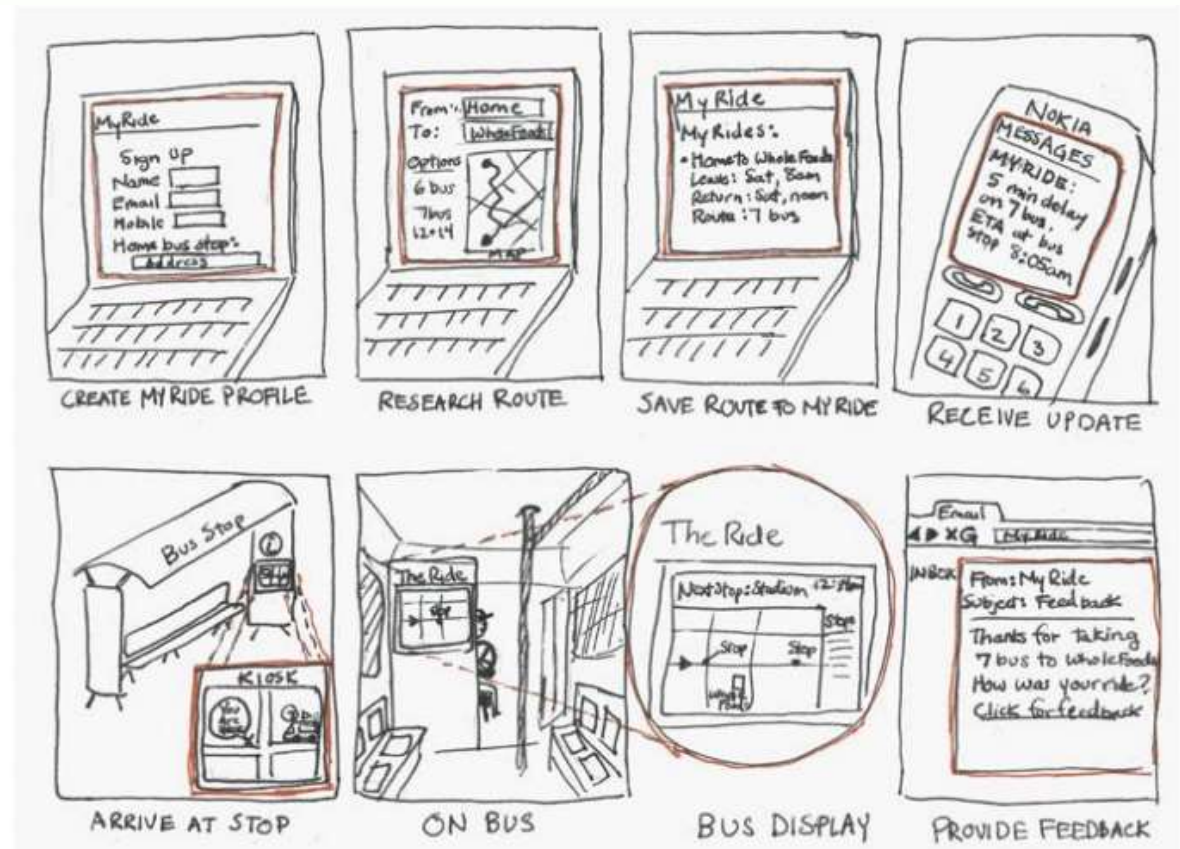 MyRide
Sign up
Name
Email
Mobile
Home bus stop:
address
CREATE MYRIDE PROFILE
From: Home
To: Whole Foods
Options
6 bus
7 bus
12+14
MAP
RESEARCH ROUTE
My Ride
My Rides:
• Home to Whole Foods
Leave: Sat, 8am
Return: Sat, noon
Route: 7 bus
SAVE ROUTE TO MY RIDE
NOKIA
MESSAGES
MY RIDE:
5 min delay
on 7 bus,
ETA at bus
stop 8:05am
1 2 3
4 5 6
RECEIVE UPDATE
Bus Stop
i
KIOSK
You
are
ARRIVE AT STOP
The Ride
Stop
ON BUS
The Ride
Next Stop: Stadium
Stops
Stop Stop
Whole
Foods
BUS DISPLAY
Email
X G My Ride
INBOX
From: My Ride
Subject: Feedback
Thanks for taking
7 bus to Whole Foods
How was your ride?
Click for feedback
PROVIDE FEEDBACK